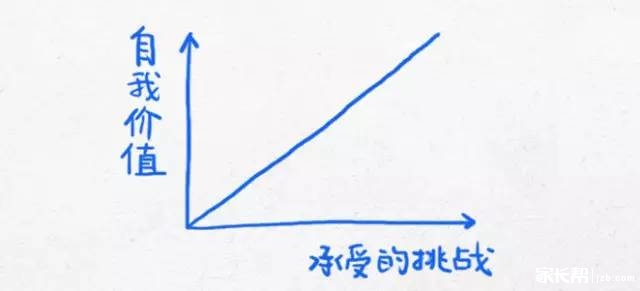 自我价值
承受的挑战
家长帮 jzb.com